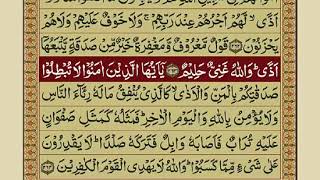 اَذًىۙ لَّهُمْ اَجْرُهُمْ عِنْدَ رَبِّهِمْۚ وَلَا خَوْفٌ عَلَيْهِمْ وَلَا هُمْ
يَحْزَنُوْنَ ۝٢٦٢ قَوْلٌ مَّعْرُوْفٌ وَّمَغْفِرَةٌ خَيْرٌ مِّنْ صَدَقَةٍ يَّتْبَعُهَاۤ
اَذًىؕ وَاللّٰهُ غَنِىٌّ حَلِيْمٌ ۝٢٦٣ يٰۤاَيُّهَا الَّذِيْنَ اٰمَنُوْا لَا تُبْطِلُوْا
صَدَقٰتِكُمْ بِالْمَنِّ وَالْاَذٰىۙ كَالَّذِىْ يُنْفِقُ مَالَهٗ رِئَآءَ النَّاسِ
وَلَا يُؤْمِنُ بِاللّٰهِ وَالْيَوْمِ الْاٰخِرِؕ فَمَثَلُهٗ كَمَثَلِ صَفْوَانٍ
عَلَيْهِ تُرَابٌ فَاَصَابَهٗ وَابِلٌ فَتَرَكَهٗ صَلْدًاؕ لَا يَقْدِرُوْنَ
عَلٰى شَىْءٍ مِّمَّا كَسَبُوْاؕ وَاللّٰهُ لَا يَهْدِى الْقَوْمَ الْكٰفِرِيْنَ ۝٢٦٤